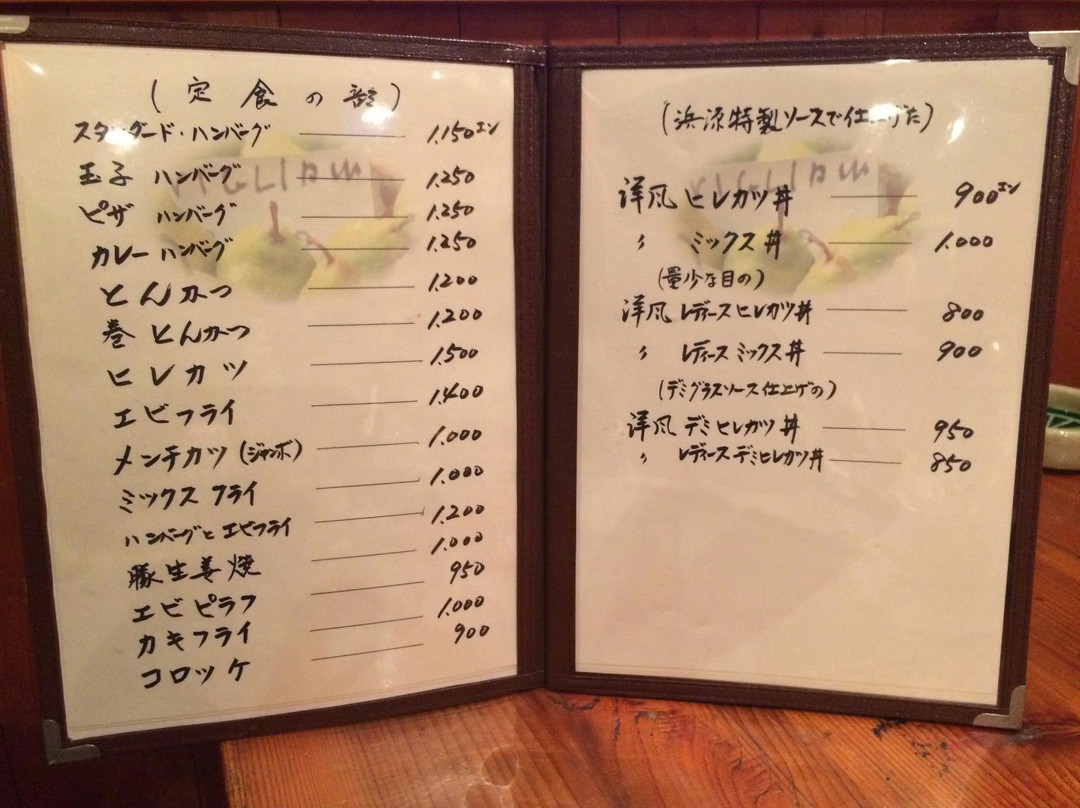 (定食の部)
スタンダード・ハンバーグ 1.150エン
玉子 ハンバーグ 1.250
ピザ ハンバーグ 1.250
カレー ハンバーグ 1.250
とんかつ 1.200
巻 とんかつ 1.200
ヒレカツ 1.500
エビフライ 1.400
メンチカツ (ジャンボ) 1.000
ミックスフライ 1.000
ハンバーグとエビフライ 1.200
豚生姜焼 1.000
エビピラフ 950
カキフライ 1.000
コロッケ 900
(浜源特製ソースで仕上げた)
洋風 ヒレカツ丼 900エン
〃 ミックス丼 1.000
(量少な目の)
洋風 レディースヒレカツ丼 800
〃 レディース ミックス丼 900
(デミグラスソース仕上げの)
洋風 デミヒレカツ丼 950
〃 レディースデミヒレカツ丼 850